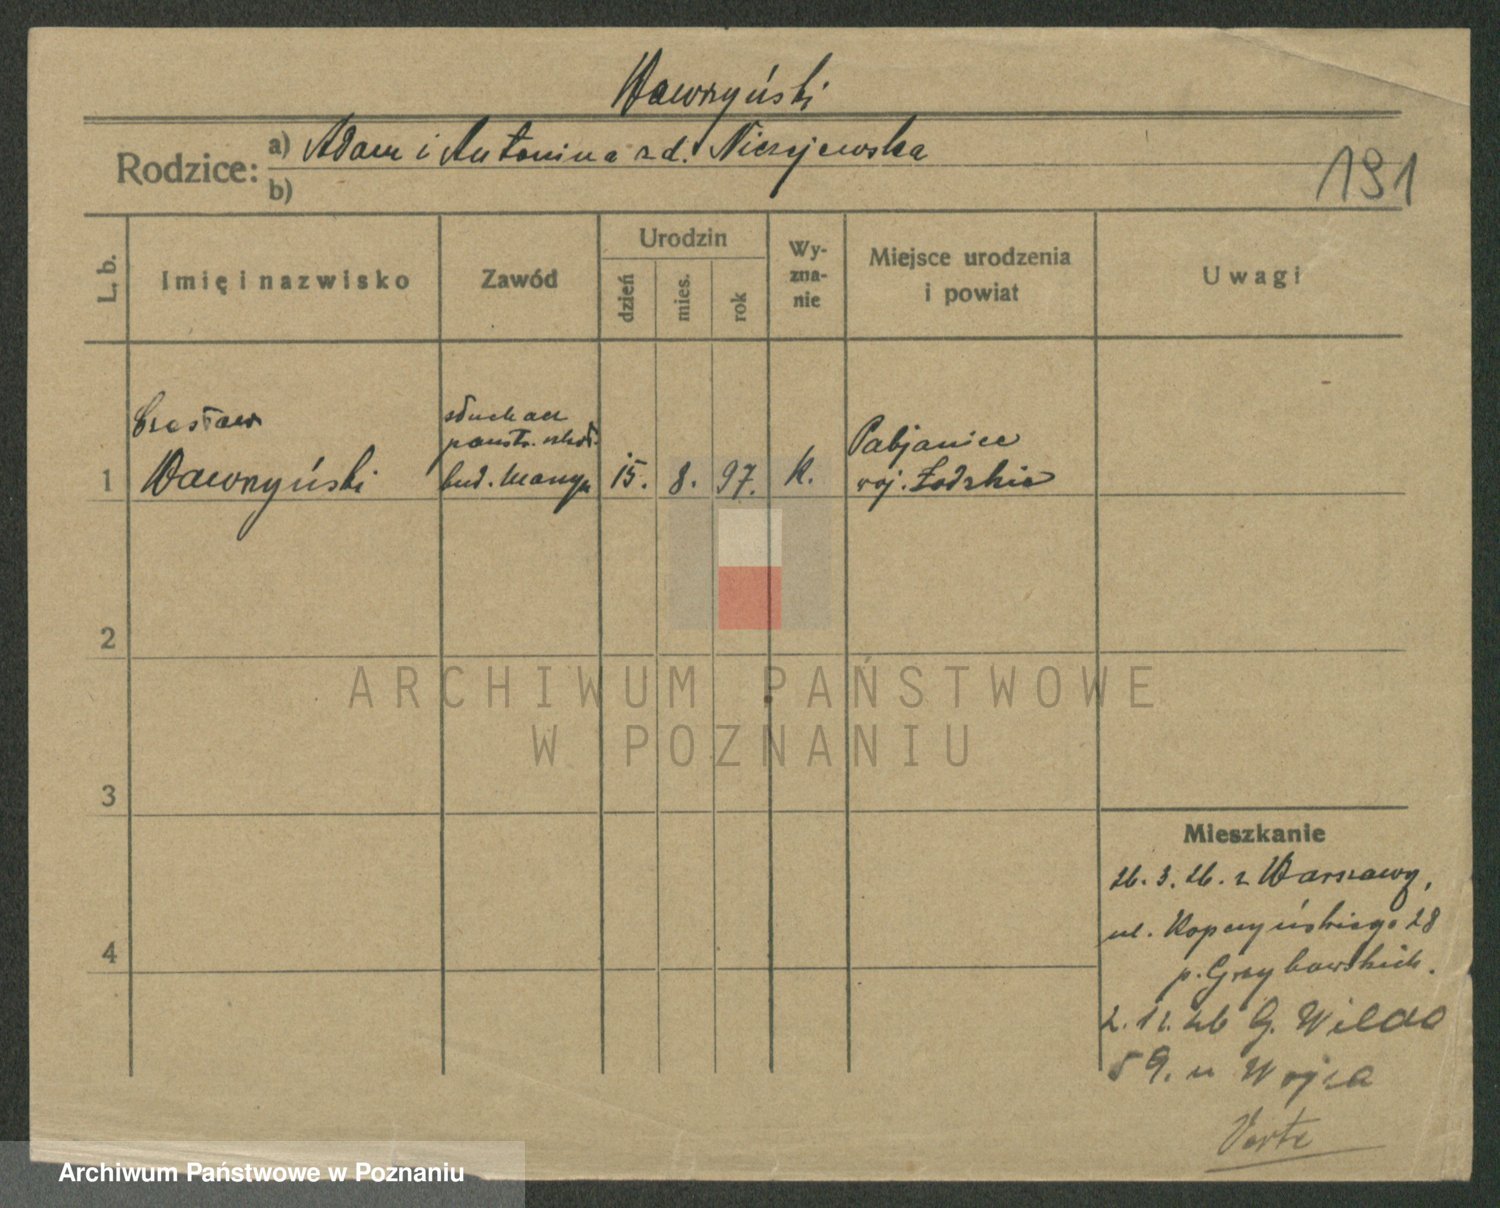 Wawrzyński
Rodzice: a) Adam i Antonina z d. Niczyjewska
b)
191
L. b. Imię i nazwisko Zawód Urodzin dzień mies. rok Wyznanie Miejsce urodzenia i powiat Uwagi
Czesław słuchacz
państw. szkoł. Pabjanice
1 Wawrzyński bud. maszyn 15. 8. 97. k. woj. Łódzkie
2
ARCHIWUM PAŃSTWOWE
W POZNANIU
3
Mieszkanie
26. 3. 26. z Warszawy,
4 ul. Kopczyńskiego 28
p. Grzybowskich.
2. 12. 26 G. Wilda
59. u Wojza
Verte
Archiwum Państwowe w Poznaniu